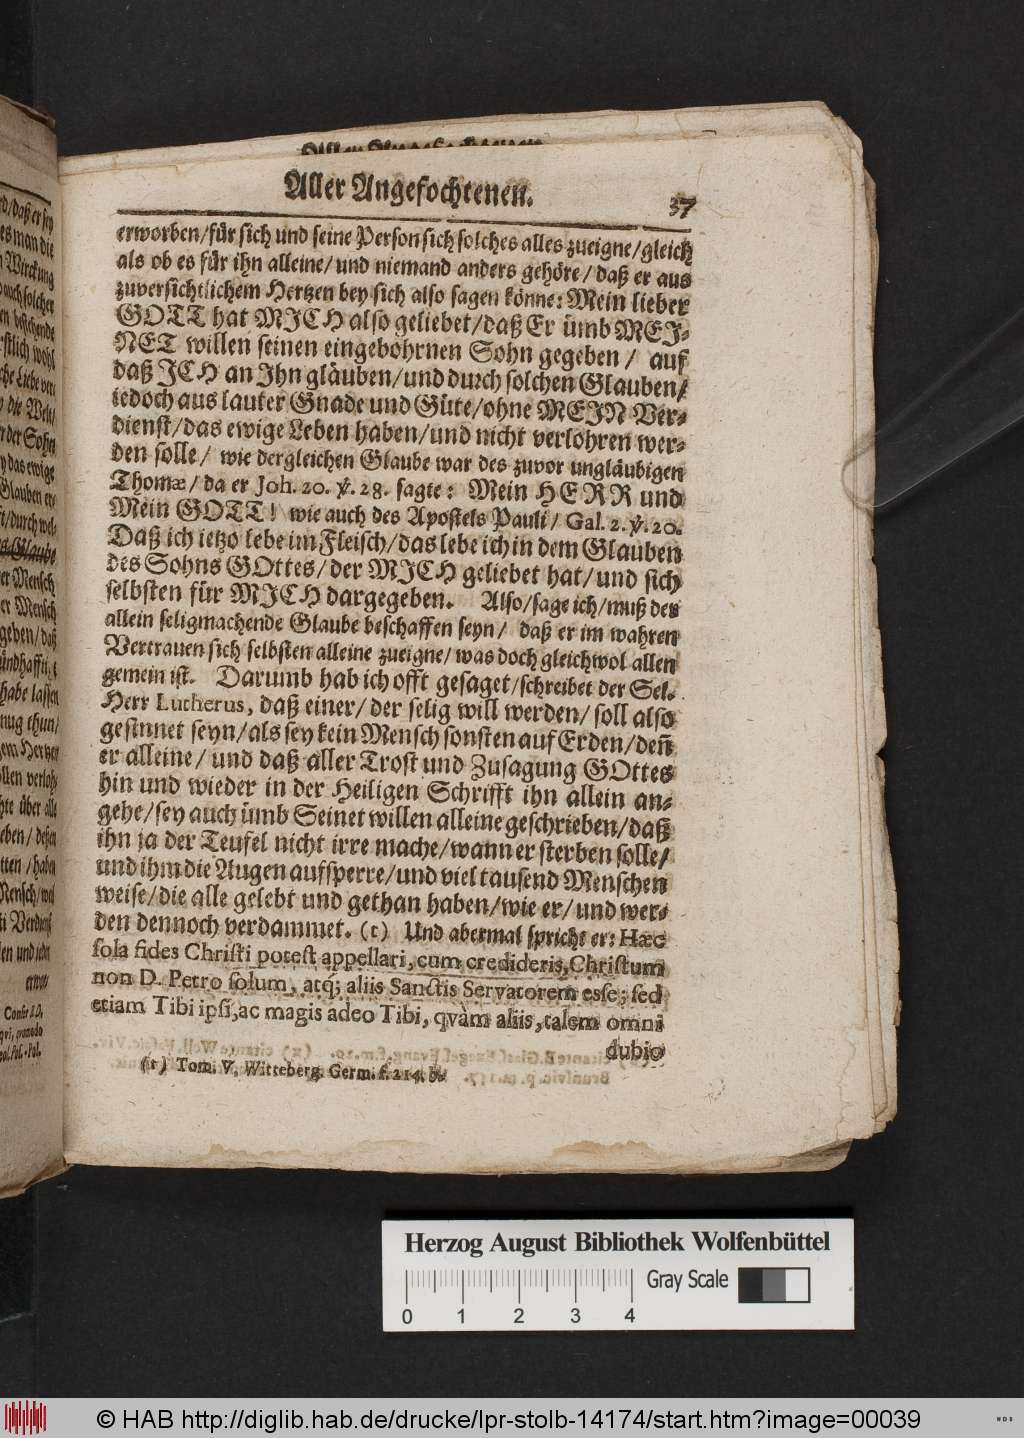 Aller Angefochtenen. 37
erworben/für sich und seine Person sich solches alles zueigne/gleich
als ob es für ihn alleine/und niemand anders gehöre/daß er aus
zuversichtlichem Hertzen bey sich also sagen könne: Mein lieber
GOTT hat MJCH also geliebet/daß Er ümb MEJ-
NET willen seinen eingebohrnen Sohn gegeben/ auf
daß JCH an Jhn gläuben/und durch solchen Glauben/
iedoch aus lauter Gnade und Güte/ohne MEJN Ver-
dienst/das ewige Leben haben/und nicht verlohren wer-
den solle/ wie dergleichen Glaube war des zuvor ungläubigen
Thomæ/ da er Joh. 20. ℣. 28. sagte: Mein HERR und
Mein GOTT! wie auch des Apostels Pauli/ Gal. 2. ℣. 20.
Daß ich ietzo lebe im Fleisch/das lebe ich in dem Glauben
des Sohns GOttes/der MJCH geliebet hat/und sich
selbsten für MJCH dargegeben. Also/sage ich/muß der
allein seligmachende Glaube beschaffen seyn/ daß er im wahren
Vertrauen sich selbsten alleine zueigne/was doch gleichwol allen
gemein ist. Darumb hab ich offt gesaget/schreibet der Sel.
Herr Lutherus, daß einer/ der selig will werden/ soll also
gesinnet seyn/als sey kein Mensch sonsten auf Erden/deñ
er alleine/ und daß aller Trost und Zusagung GOttes
hin und wieder in der Heiligen Schrifft ihn allein an-
gehe/sey auch ümb Seinet willen alleine geschrieben/daß
ihn ja der Teufel nicht irre mache/wann er sterben solle/
und ihm die Augen aufsperre/und viel tausend Menschen
weise/die alle gelebt und gethan haben/wie er/und wer-
den dennoch verdammet. (t) Und abermal spricht er: Hæc
sola fides Christi potest appellari, cum credideris, Christum
non D. Petro solum, atq́; aliis Sanctis Servatorem esse; sed
etiam Tibi ipsi, ac magis adeo Tibi, qvàm aliis, talem omni
dubio
(t) Tom. V. Witteberg. Germ. f. 214. b.
Herzog August Bibliothek Wolfenbüttel
Gray Scale
0 1 2 3 4
© HAB http://diglib.hab.de/drucke/lpr-stolb-14174/start.htm?image=00039